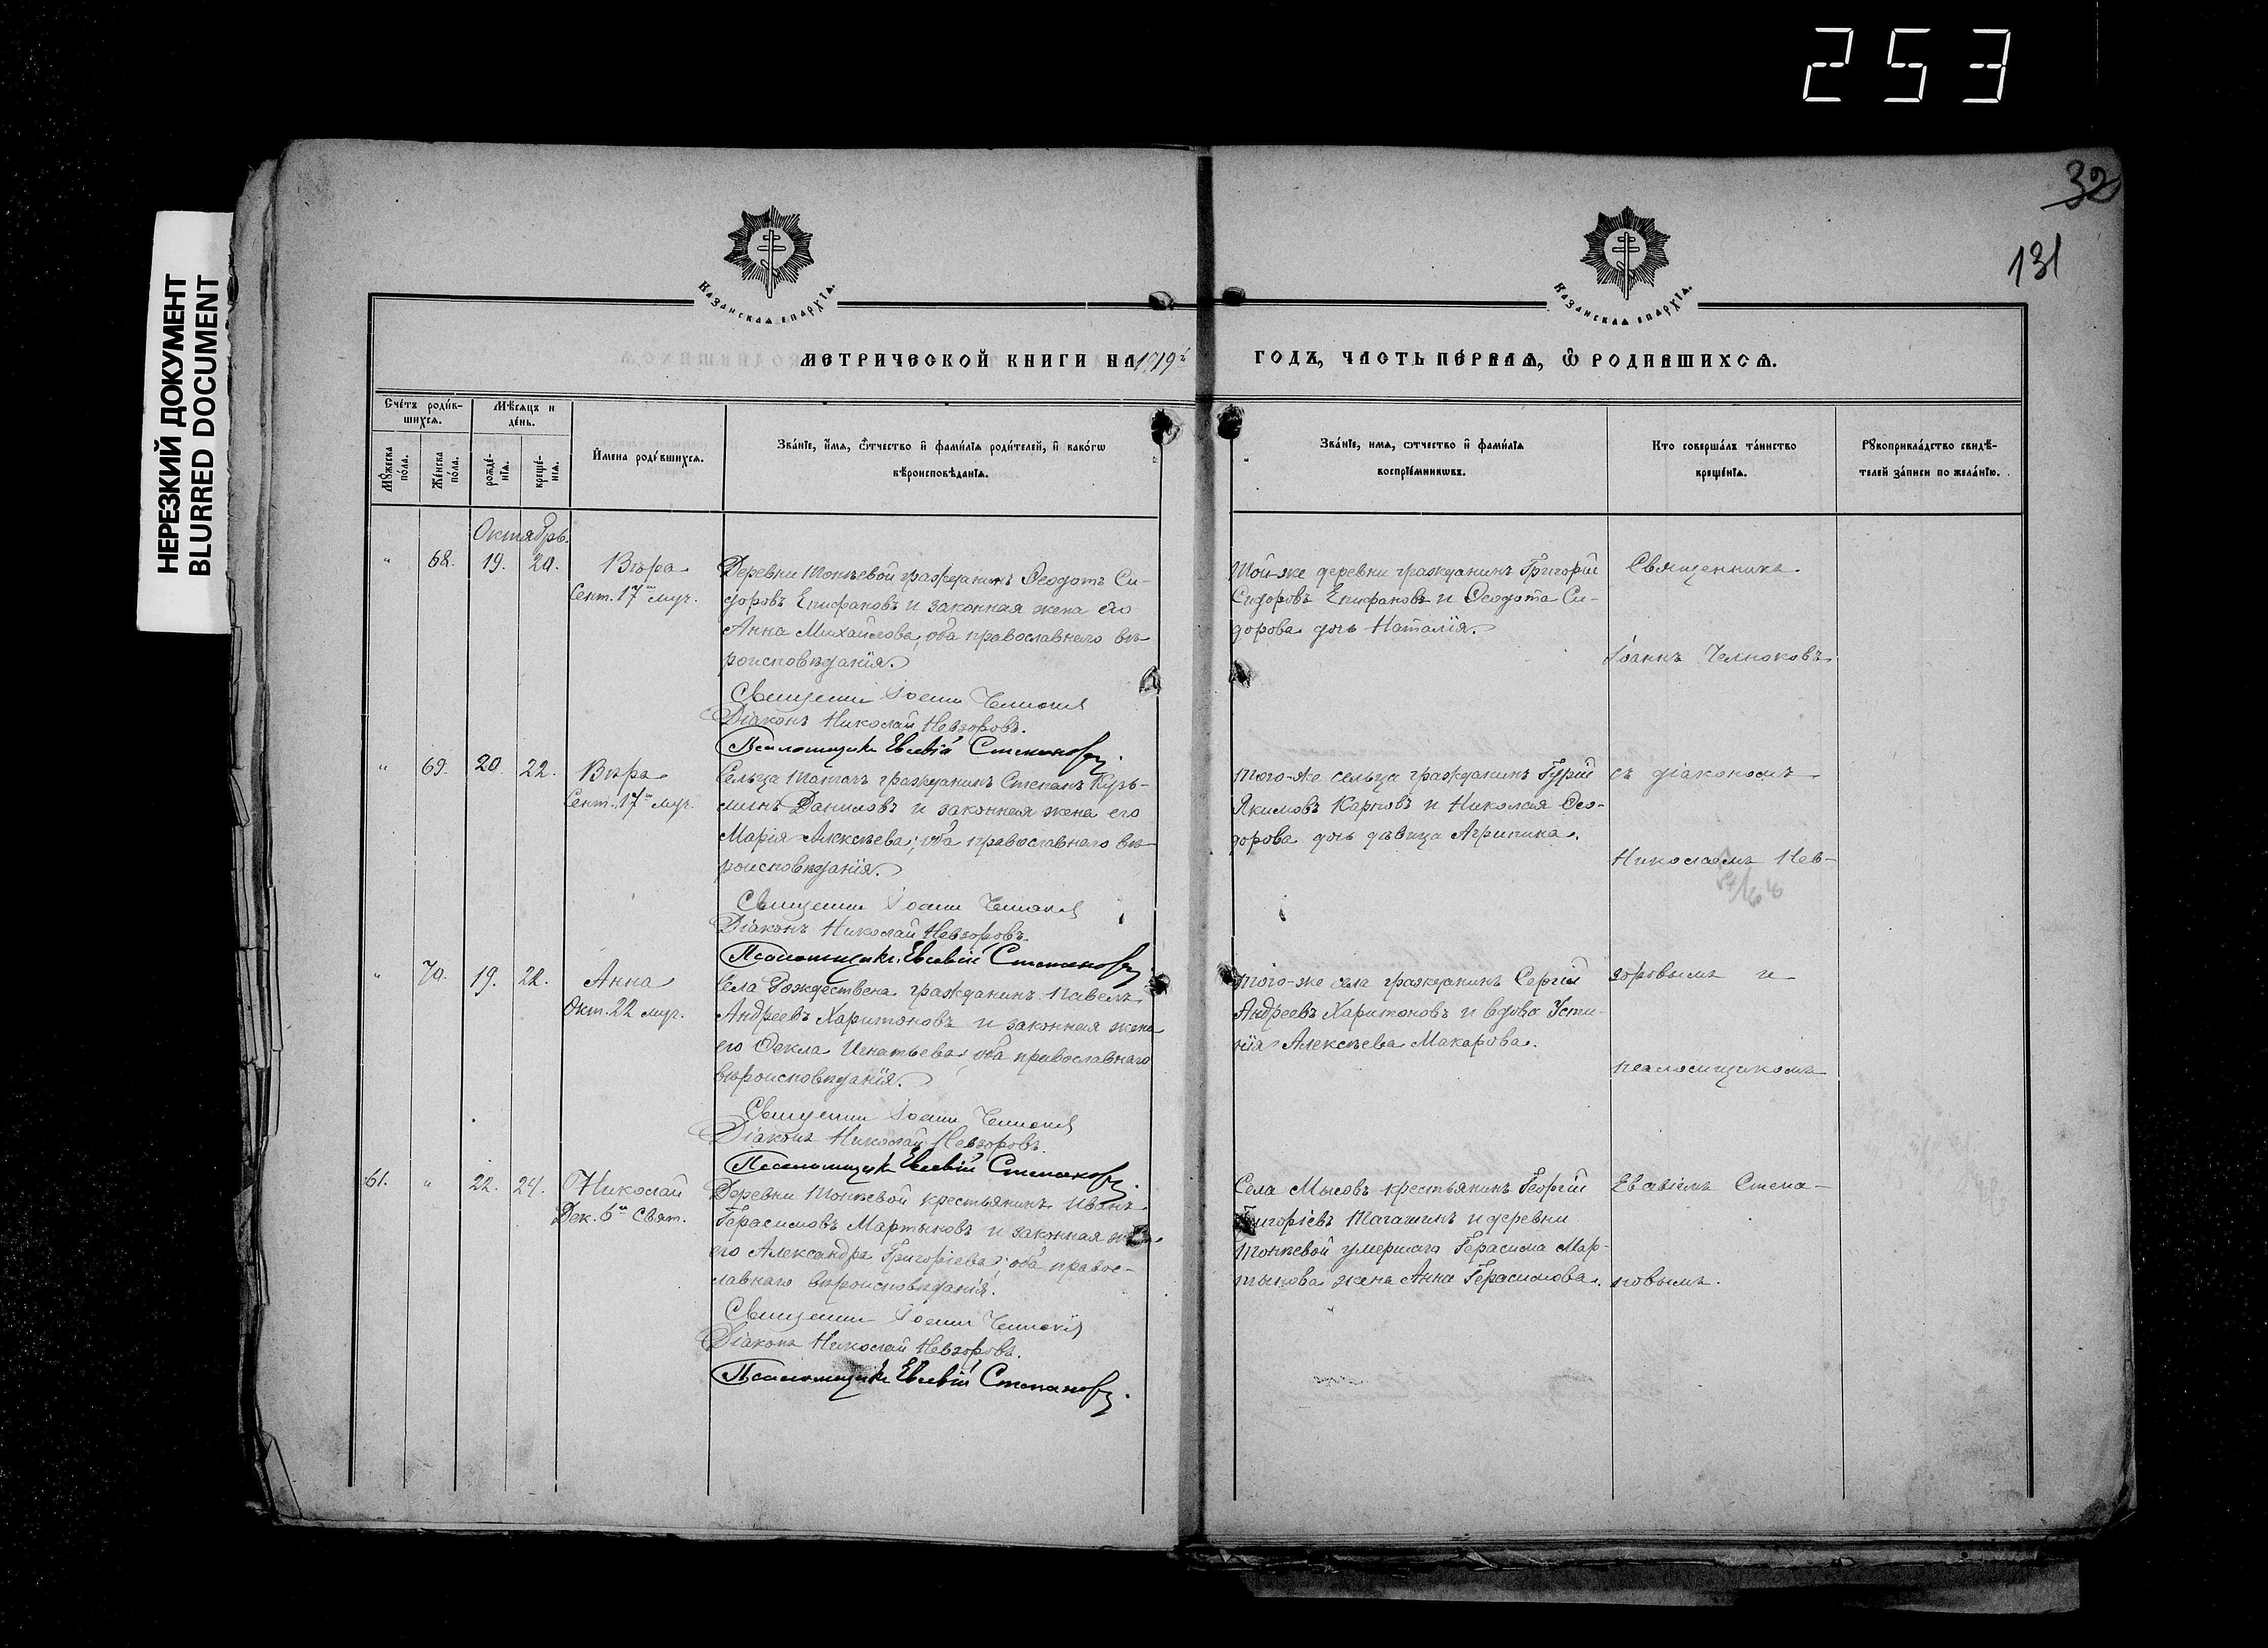 253
32
131
НЕРЕЗКИЙ ДОКУМЕНТ
BLURRED DOCUMENT
Казанская епархїѧ.
Казанская епархїѧ.
МЕТРИЧЕСКОЙ КНИГИ НА 1919й ГОДЪ, ЧАСТЬ ПЕРВАѦ, Ѡ РОДИВШИХСѦ.
Счётъ родив-
шихсѧ.
Мѣсѧцъ и
день.
Мꙋжеска
пола.
Женска
пола.
рожде-
нїѧ.
креще-
нїѧ.
Имена родившихсѧ.
Званїе, имѧ, ѿчество и фамилїѧ родителей, и какогѡ
вѣроисповѣданїѧ.
Званїе, имѧ, ѿчество и фамилїѧ
воспрїемникѡвъ.
Кто совершалъ таинство
крещенїѧ.
Рꙋкоприкладство свидѣ-
телей записи по желанїю.
Октябрь.
" 68. 19. 20. Вѣра
Сент. 17го муч.
Деревни Тонѣевой гражданинъ Ѳеодотъ Си-
доровъ Епифановъ и законная жена его
Анна Михайлова, оба православнаго вѣ-
роисповѣданія.
Священникъ Іоаннъ Челноковъ
Діаконъ Николай Невзоровъ.
Псаломщикъ Евсевій Степановъ.
Той-же деревни гражданинъ Григорій
Сидоровъ Епифановъ и Ѳеодота Си-
дорова дочь Наталія.
Священникъ
Іоаннъ Челноковъ
" 69. 20. 22. Вѣра
Сент. 17го муч.
Сельца гражданинъ Степанъ Кузь-
минъ Даниловъ и законная жена его
Марія Алексѣева; оба православнаго вѣ-
роисповѣданія.
Священникъ Іоаннъ Челноковъ
Діаконъ Николай Невзоровъ.
Псаломщикъ Евсевій Степановъ.
Того-же сельца гражданинъ Гурій
Якимовъ Карповъ и Николая Ѳео-
дорова дочь дѣвица Агрипина.
съ діакономъ
Николаемъ Нев-
" 70. 19. 22. Анна
Окт. 22 муч.
Села Рождествена гражданинъ Павелъ
Андреевъ Харитоновъ и законная жена
его Ѳекла Игнатьева; оба православнаго
вѣроисповѣданія.
Священникъ Іоаннъ Челноковъ
Діаконъ Николай Невзоровъ.
Псаломщикъ Евсевій Степановъ.
Того-же села гражданинъ Сергій
Андреевъ Харитоновъ и вдова Усти-
нія Алексѣева Макарова.
зоровымъ и
псаломщикомъ
61. " 22. 24. Николай
Дек. 6го Свят.
Деревни Тонѣевой крестьянинъ Иванъ
Герасимовъ Мартыновъ и законная жена
его Александра Григоріева; оба правос-
лавнаго вѣроисповѣданія.
Священникъ Іоаннъ Челноковъ
Діаконъ Николай Невзоровъ.
Псаломщикъ Евсевій Степановъ.
Села Мысовъ крестьянинъ Георгій
Григоріевъ и деревни
Тонѣевой умершаго Герасима Мар-
тынова жена Анна Герасимова.
Евсевіемъ Степа-
новымъ.